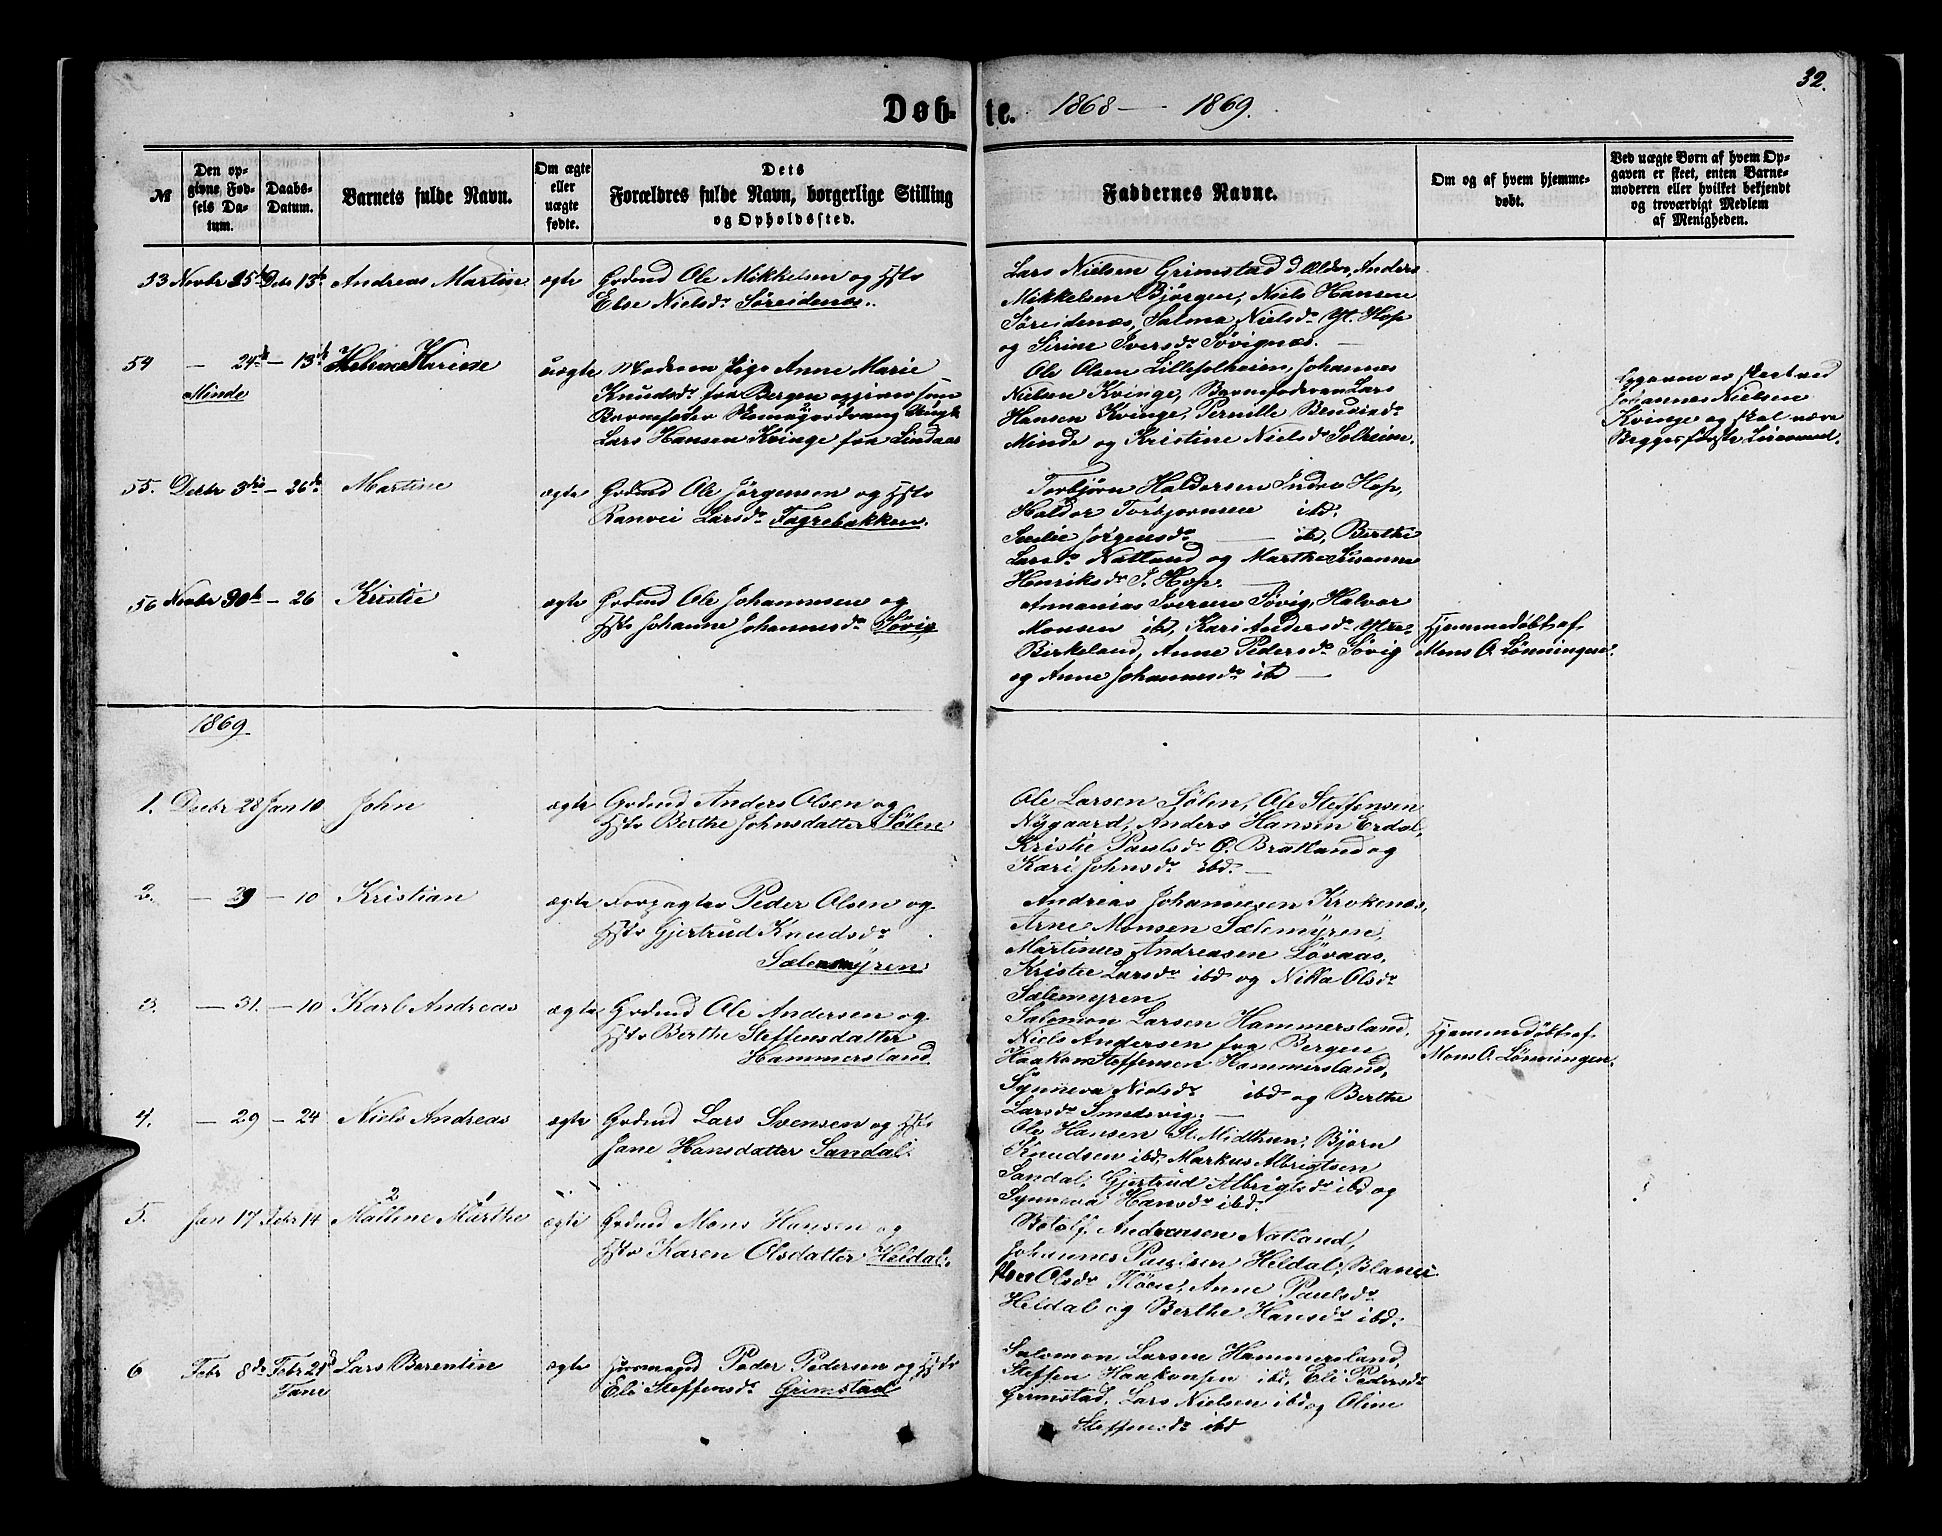 32.
Døb-te. 1868 — 1869.
№
Den opgivne Fødsels Datum.
Daabs-Datum.
Barnets fulde Navn.
Om ægte eller uægte fødte.
Dets Forældres fulde Navn, borgerlige Stilling og Opholdssted.
Faddernes Navne.
Om og af hvem hjemmedøbt.
Ved uægte Børn af hvem Opgaven er skeet, enten Barnemoderen eller hvilket bekjendt og troværdigt Medlem af Menigheden.
53 Novbr 25 Debr 13 Andreas Martin ægte Grdmd Ole Mikkelsen og Hstr
Else Nielsdr Søreidenæs.
Lars Nielsen Grimstad d. Ældre, Anders
Mikkelsen Bjørgen, Niels Hansen
Søreidenæs, Salma Nielsdr Yt. Hop
og Sirine Iversdr Søvignæs.
54 — 24 — 13 Karine uægte Moderen Pige Anne Marie
Minde
Knudsdr fra Bergen opgiver som
Barnefader
Lars Hansen Kvinge fra Lindaas
Ole Olsen Lillesolheim, Johannes
Nielsen Kvinge, Barnefaderen Lars
Hansen Kvinge, Pernille
Minde og Kristine Nielsdr Solheim.
Opgaven er skeet ved
Johannes Nielsen
Kvinge og skal være
Begges første Leiermaal.
55. Decbr 3die — 26de Martine ægte Grdmd Ole Jørgensen og Hstr
Ranvei Larsdr Fagerbakken.
Torbjørn Haldorsen Indre Hop,
Haldor Torbjørnsen ibd.
Jørgensdr — ibd, Berthe
Larsdr Natland og Marthe Susanne
Henriksdr I. Hop.
56 Novbr 30 — 26 Kristie ægte Grdmd Ole Johannesen og
Hstr Johanne Johannesdr Søvig
Annanias Iversen Søvig, Halvor
Monsen ibd, Kari Andersdr Ytre-
Birkeland, Anne Pedersdr Søvig
og Anne Johannesdr ibd —
Hjemmedøbt af
Mons O. Lønningen.
1869
1. Decbr 28 Jan 10 John ægte Grdmd Anders Olsen og
Hstr Berthe Johnsdatter Sølen
Ole Larsen Sølen, Ole Steffensen
Nygaard, Anders Hansen Erdal,
Kristie Paulsdr Ø. Bratland og
Kari Johnsdr ibd. —
2. — 29 — 10 Kristian ægte Forpagter Peder Olsen og
Hstr Gjertrud Knudsdr
Sælemyren.
Andreas Johannesen Krokenæs,
Arne Monsen Sælemyren,
Martinus Andreasen Løvaas,
Kristie Larsdr ibd og Nikka Olsdr
Sælemyren
3. — 31. — 10 Karl Andreas ægte Grdmd Ole Andersen og
Hstr Berthe Steffensdatter
Hammersland
Salomon Larsen Hammersland,
Niels Andersen fra Bergen
Haakon Steffensen Hammersland,
Synneva Nielsdr ibd og Berthe
Larsdr Smedsvig. —
Hjemmedøbt af
Mons O. Lønningen.
4. — 29 — 24 Niels Andreas ægte Grdmd Lars Svensen og Hstr
Jane Hansdatter Sandal.
Ole Hansen St. Midttun, Bjørn
Knudsen ibd, Markus Albrigtsen
Sandal, Gjertrud Albrigtsdr ibd og
Synneva Hansdr ibd.
5. Jan 17 Febr 14 Malline Marthe ægte Grdmd Mons Hansen og
Hstr Karen Olsdatter Heldal.
Botolf Andreasen Natland,
Johannes Paulsen Heldal,
Olsdr Fløen, Anne Paulsdr
Heldal og Berthe Hansdr ibd.
6 Febr 8de Febr 21 Lars Berentin ægte Huusmand Peder Pedersen og Hstr
Fane
Eli Steffensdr Grimstad
Salomon Larsen Hammersland,
Steffen Haakonsen ibd, Eli Pedersdr
Grimstad, Lars Nielsen ibd og Oline
Steffensdr ibd